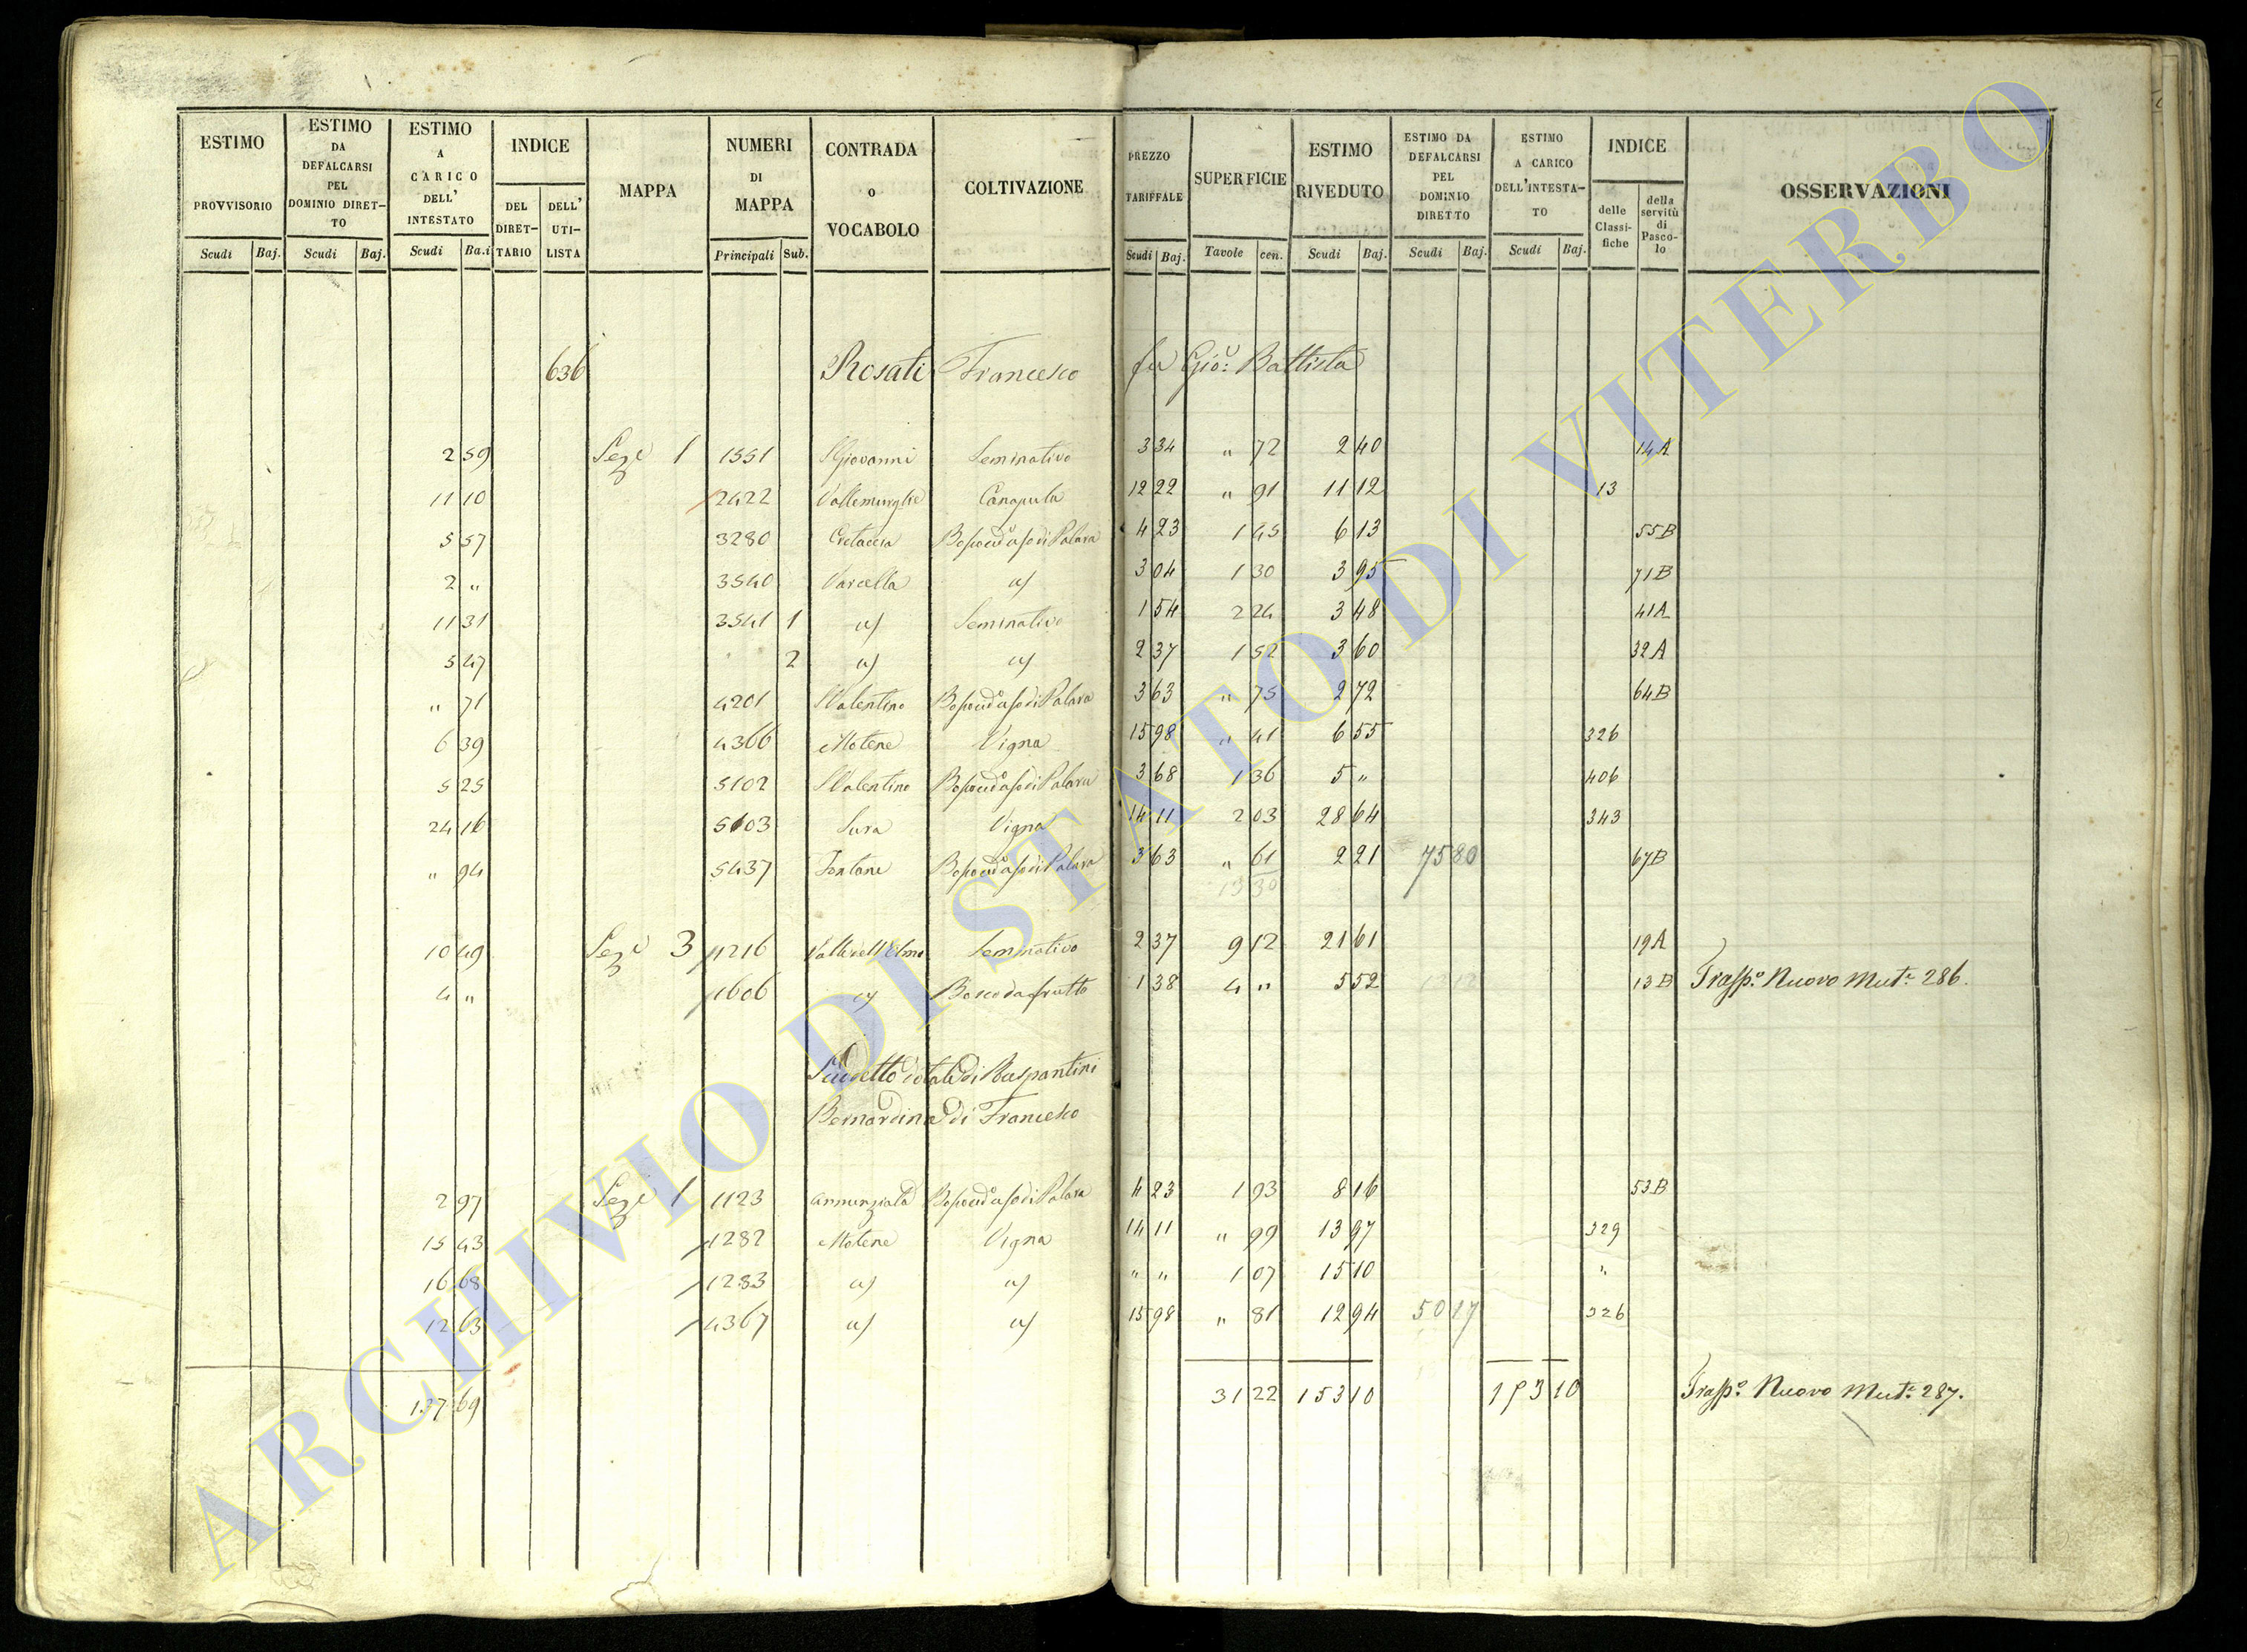 ESTIMO PROVVISORIO Scudi Baj.
ESTIMO DA DEFALCARSI PEL DOMINIO DIRET-TO Scudi Baj.
ESTIMO A CARICO DELL' INTESTATO Scudi Ba.i
INDICE DEL DIRET-TARIO DELL' UTI-LISTA
MAPPA
NUMERI DI MAPPA Principali Sub.
CONTRADA o VOCABOLO
COLTIVAZIONE
PREZZO TARIFFALE Scudi Baj.
SUPERFICIE Tavole cen.
ESTIMO RIVEDUTO Scudi Baj.
ESTIMO DA DEFALCARSI PEL DOMINIO DIRETTO Scudi Baj.
ESTIMO A CARICO DELL'INTESTA-TO Scudi Baj.
INDICE delle Classi-fiche della servitù di Pasco-lo
OSSERVAZIONI
636 Rosati Francesco fu Gio: Battista
2 59 Sez.e 1 1551 S Giovanni Seminativo 3 34 " 72 2 40 14A
11 10 2422 Canapula 12 22 " 91 11 12 13
5 57 3280 Cretaccia 4 23 1 45 6 13 55B
2 " 3540 Varcella a/ 3 04 1 30 3 95 71B
11 31 3541 1 a/ Seminativo 1 54 2 24 3 48 41A
5 47 2 a/ a/ 2 37 1 52 3 60 32A
" 71 4201 S Valentino 3 63 " 75 2 72 64B
6 39 4366 Motene Vigna 15 98 " 41 6 55 326
5 25 5102 S Valentino 3 68 1 36 5 " 406
24 16 5103 Sura Vigna 14 11 2 03 28 64 343
" 94 5437 Fontane 3 63 " 61 2 21 75 80 67B
13 30
10 49 Sez.e 3 1216 Seminativo 2 37 9 12 21 61 19A
4 " 1606 a/ Bosco da frutto 1 38 4 " 5 52 13B Trasp.o Nuovo Mut.e 286.
Suddetto dotale di Ruspantini
Bernardina di Francesco
2 97 Sez.e 1 1123 annunziata 4 23 1 93 8 16 53B
15 43 1282 Motene Vigna 14 11 " 99 13 97 329
16 68 1283 a/ a/ " " 1 07 15 10 "
12 63 4367 a/ a/ 15 98 " 81 12 94 50 17 326
137 69 31 22 153 10 153 10 Trasp.o Nuovo Mut.e 287.
ARCHIVIO DI STATO DI VITERBO